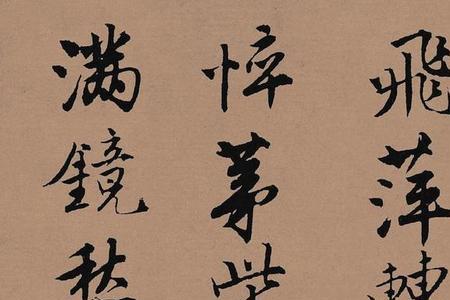 飛萍
悴茅
滿鏡愁